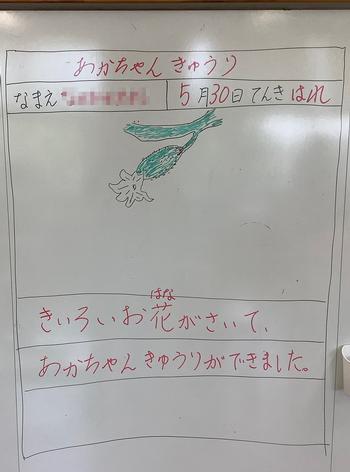 あかちゃん きゅうり
なまえ 5月30日 てんき はれ
はな
きいろいお花がさいて、
あかちゃん きゅうりができました。